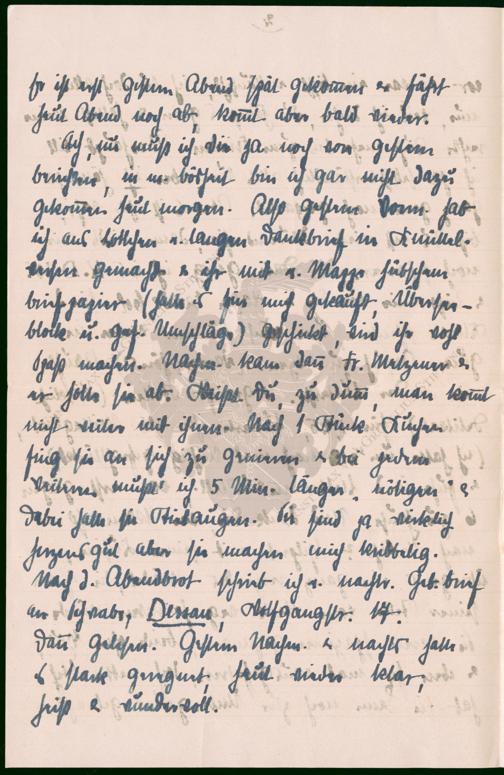 2
Er ist erst gestern Abend spät gekommen u. fährt
heut Abend noch ab, kommt aber bald wieder.
Ach, nu muß ich dir ja noch von gestern
berichten, in m. bin ich gar nicht dazu
gekommen heut morgen. Also gestern Vorm. hab
ich aus Lottchen u. langen Dankbrief in Knittel-
versen gemacht u. ihr mit u. Mappe hübschem
briefpapier (hatte s für mich gekauft, Übersee-
block u. gef. Umschläge) geschickt, wird ihr wohl
Spaß machen. Nachm. kam dann Fr. Metzener u.
er holte sie ab. Weißt Du, zu dumm, man kommt
nicht weiter mit ihnen. Nach 1 Stück Kuchen
fing sie an sich zu genieren u. bei jedem
weiteren mußt' ich 5 Min. lang „nötigen" u.
dabei hatte sie Stielaugen. Sie sind ja wirklich
herzensgut aber sie machen mich kribbelig.
Nach d. Abendbrot schrieb ich u. nachtr. Geb. brief
an Schwabe, Dessau, Wolfgangstr. 14.
Dann gelesen. Gestern Nachm. u. nachts hatte
s stark geregnet, heut wieder klar,
heiß u. wundervoll.